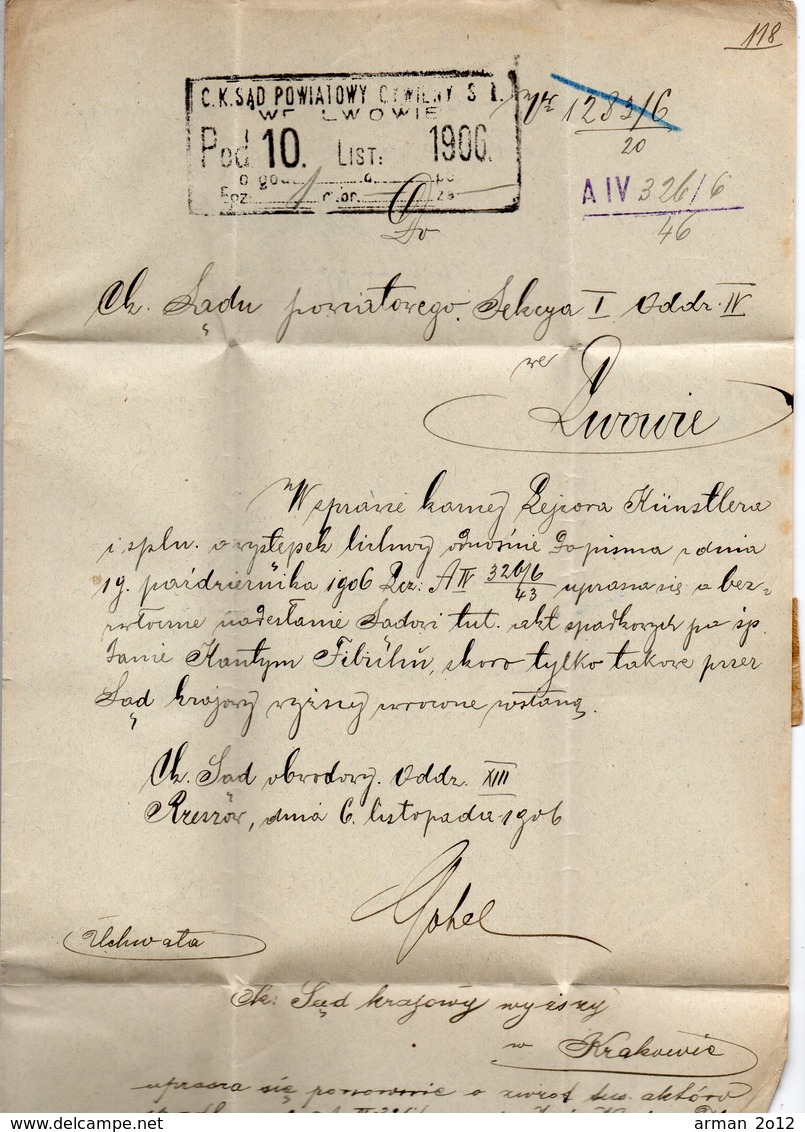 118
C.K. SĄD POWIATOWY CYWILNY S I.
WE LWOWIE
Pod 10. LIST: 1906.
Nr 1283/6
20
A IV 326/6
46
Do
Ck. Sądu powiatowego. Sekcya I Oddz. IV
we
Lwowie
W sprawie karnej Lejzora Künstlera
i spln. o występek lichwy odnośnie do pisma z dnia
19. października 1906 Lcz: A IV 326/6 uprasza się o bez-
43
zwłoczne nadesłanie Sądowi tut. akt spadkowych po śp.
Janie Kantym skoro tylko takowe przez
Sąd krajowy wyższy zwrócone zostaną.
Ck. Sąd obwodowy. Oddz. XIII
Rzeszów, dnia 6. listopada 1906
Uchwała
Ck: Sąd krajowy wyższy
w Krakowie
uprasza się ponownie o zwrot tus. aktów
arman 2012